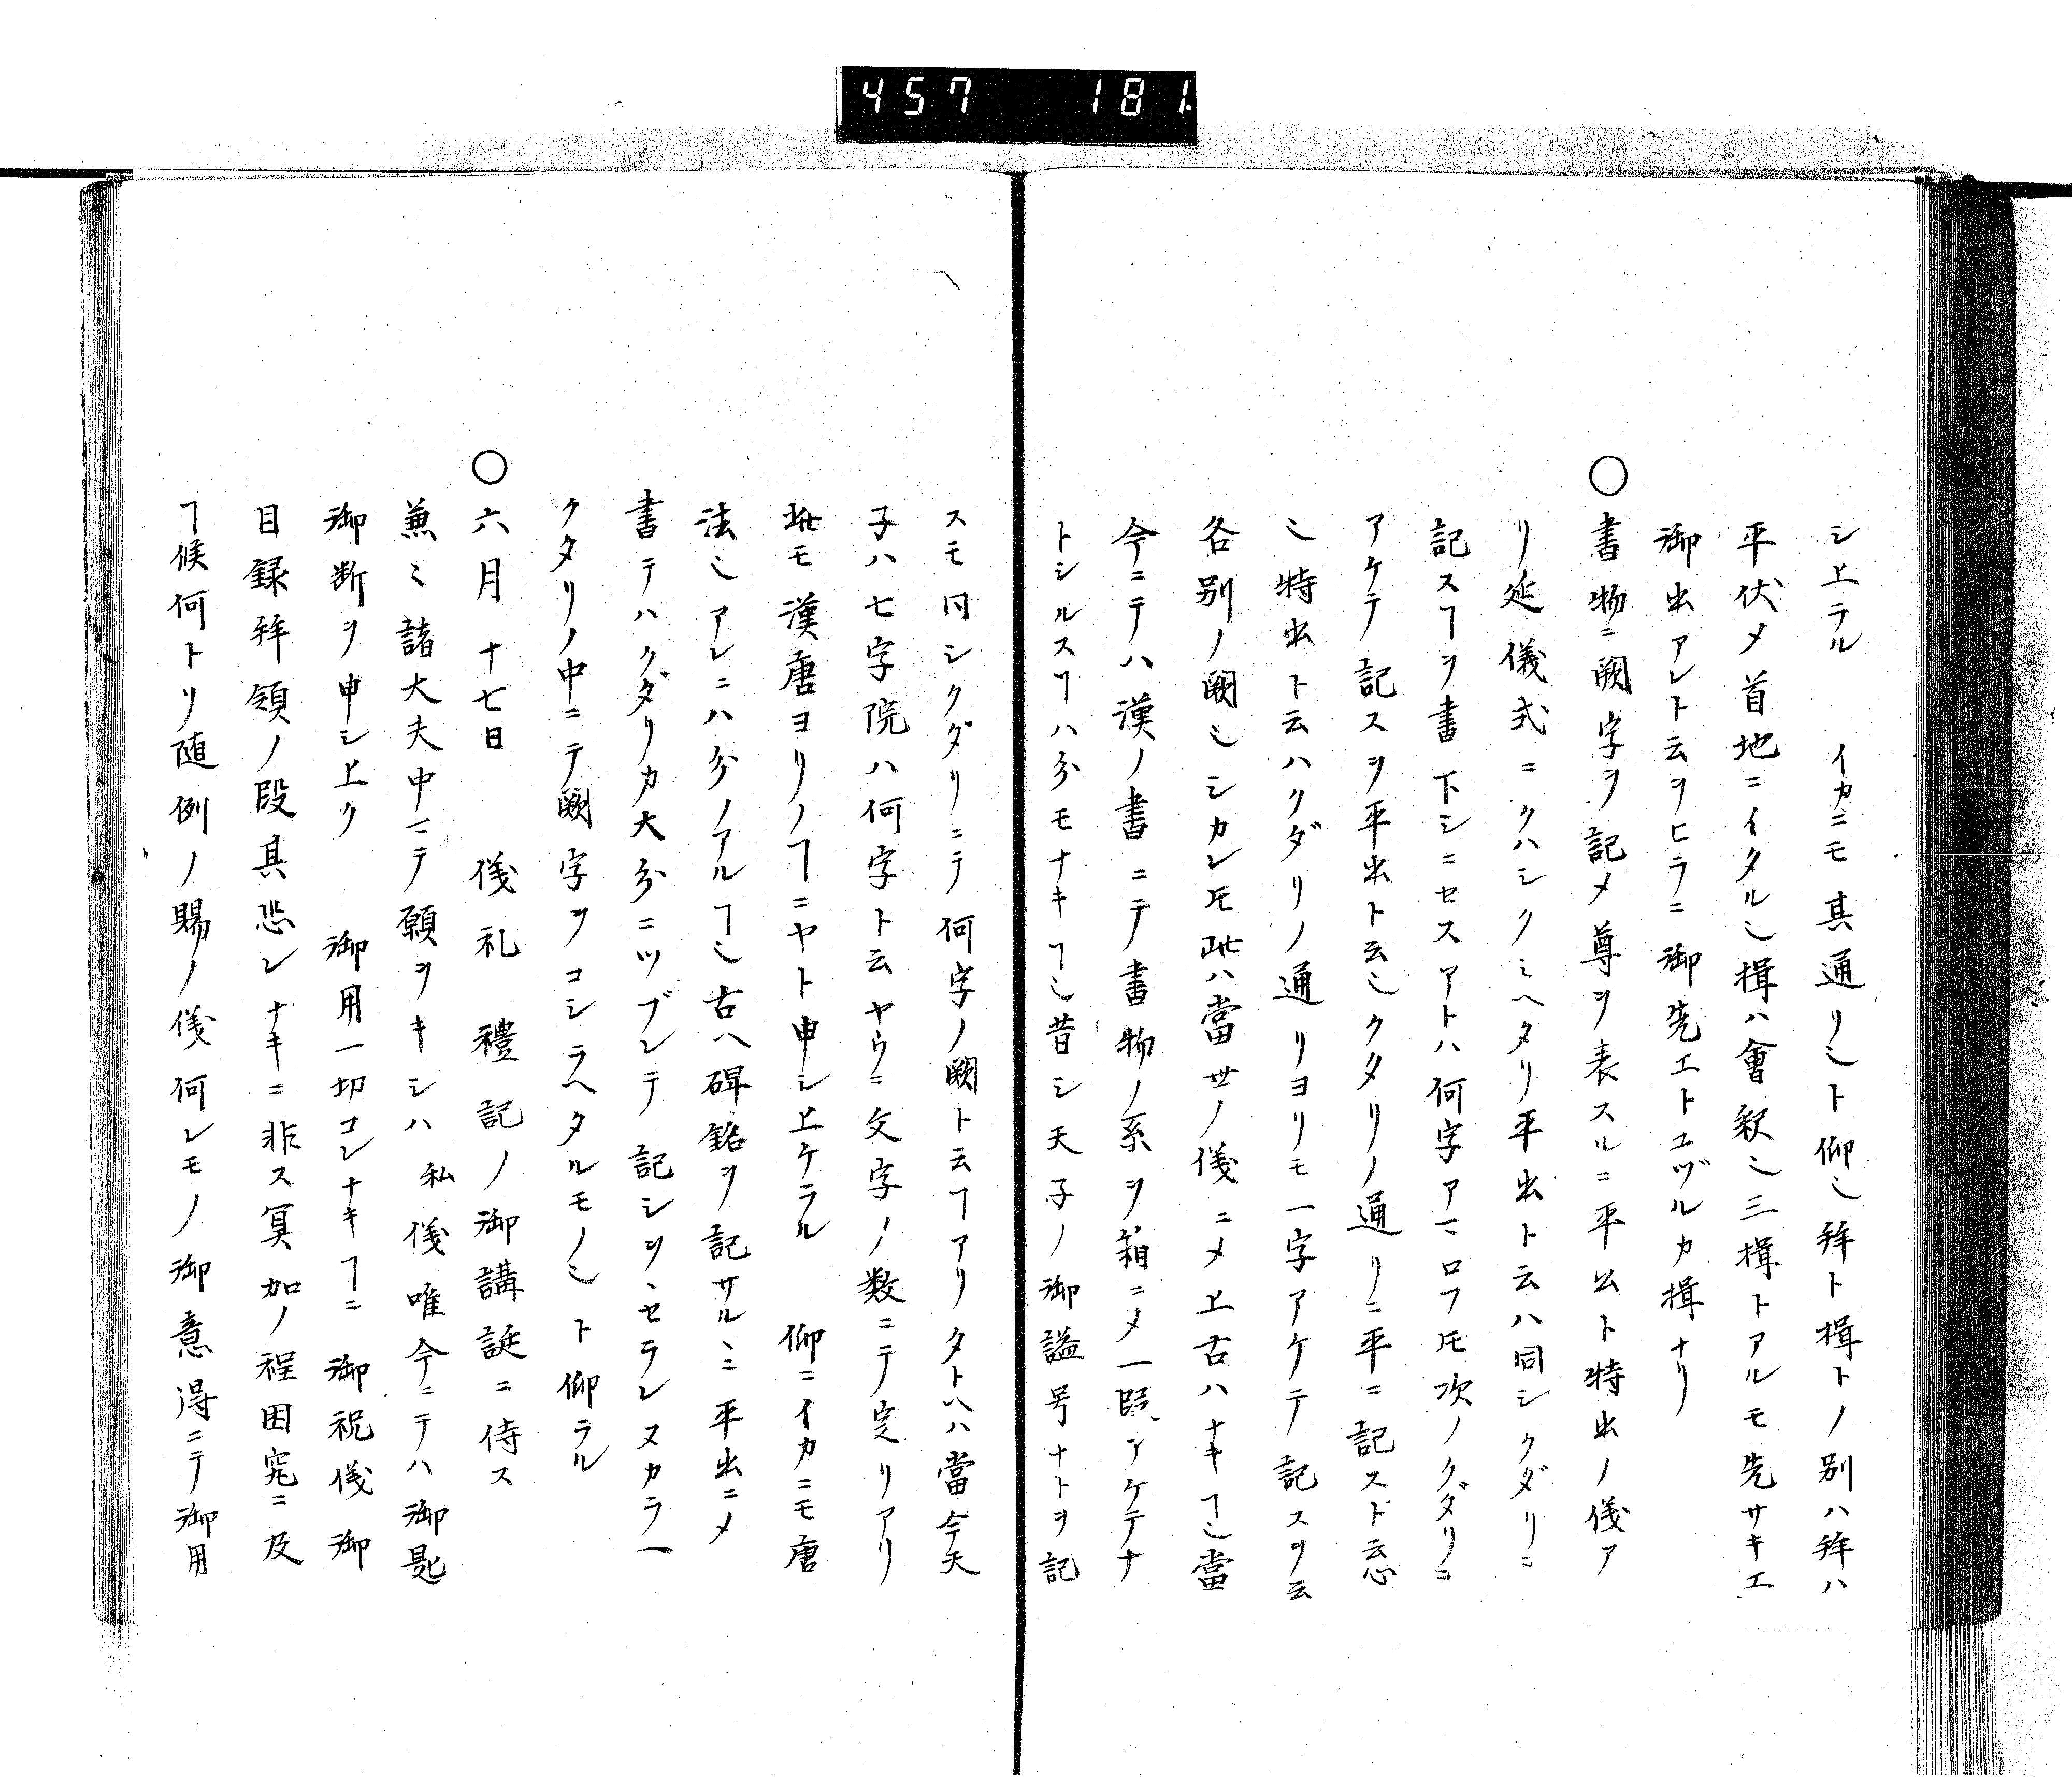 457 181.
シ上ラル　イカニモ其通リ〆ト仰〆拜ト揖トノ別ハ拜ハ
平伏メ首地ニイタル〆揖ハ會釈〆三揖トアルモ先サキエ
御出アレト云ヲヒラニ御先エトユヅルカ揖ナリ
○書物ニ闕字ヲ記メ尊ヲ表スルニ平出ト特出ノ儀ア
リ延儀式ニクハシクミヘタリ平出ト云ハ同シクダリニ
記スヿヲ書下シニセスアトハ何字アマロフ𪜈次ノクダリニ
アケテ記スヲ平出ト云〆クタリノ通リニ平ニ記スト云心
〆特出ト云ハクダリノ通リヨリモ一字アケテ記スヲ云
各別ノ闕〆シカレ𪜈此ハ當世ノ儀ニメ上古ハナキヿ〆當
今ニテハ漢ノ書ニテ書物ノ系ヲ箱ニメ一段アケテナ
トシルスヿハ分モナキヿ〆昔シ天子ノ御謚号ナトヲ記
スモ同シクダリニテ何字ノ闕ト云ヿアリタトハハ當今天
子ハ七字院ハ何字ト云ヤウニ文字ノ数ニテ定リアリ
此モ漢唐ヨリノヿニヤト申シ上ケラル　仰ニイカニモ唐
法〆アレニハ分ノアルヿ〆古ハ碑銘ヲ記サルヽニ平出ニメ
書テハクダリカ大分ニツブレテ記シツヽセラレヌカラ一
クタリノ中ニテ闕字ヲコシラヘタルモノ〆ト仰ラル
○六月十七日　儀礼　禮記ノ御講誔ニ侍ス
兼〻諸大夫中マテ願ヲキシハ私儀唯今ニテハ御匙
御断ヲ申シ上ク　御用一切コレナキヿニ御祝儀御
目録拜領ノ段其恐レナキニ非ス冥加ノ程困窮ニ及
ヿ候何トリ随例ノ賜ノ儀何レモノ御意得ニテ御用